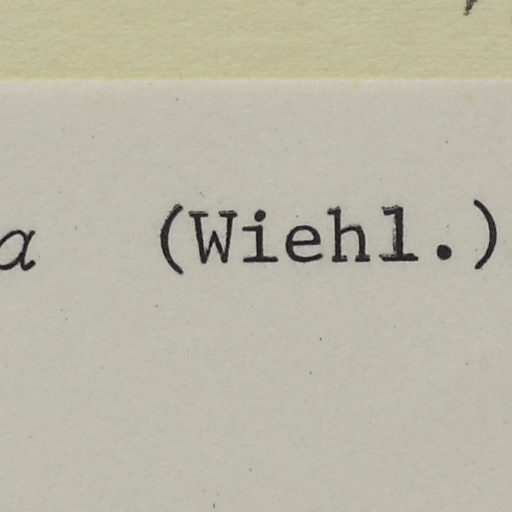 a (Wiehl.)